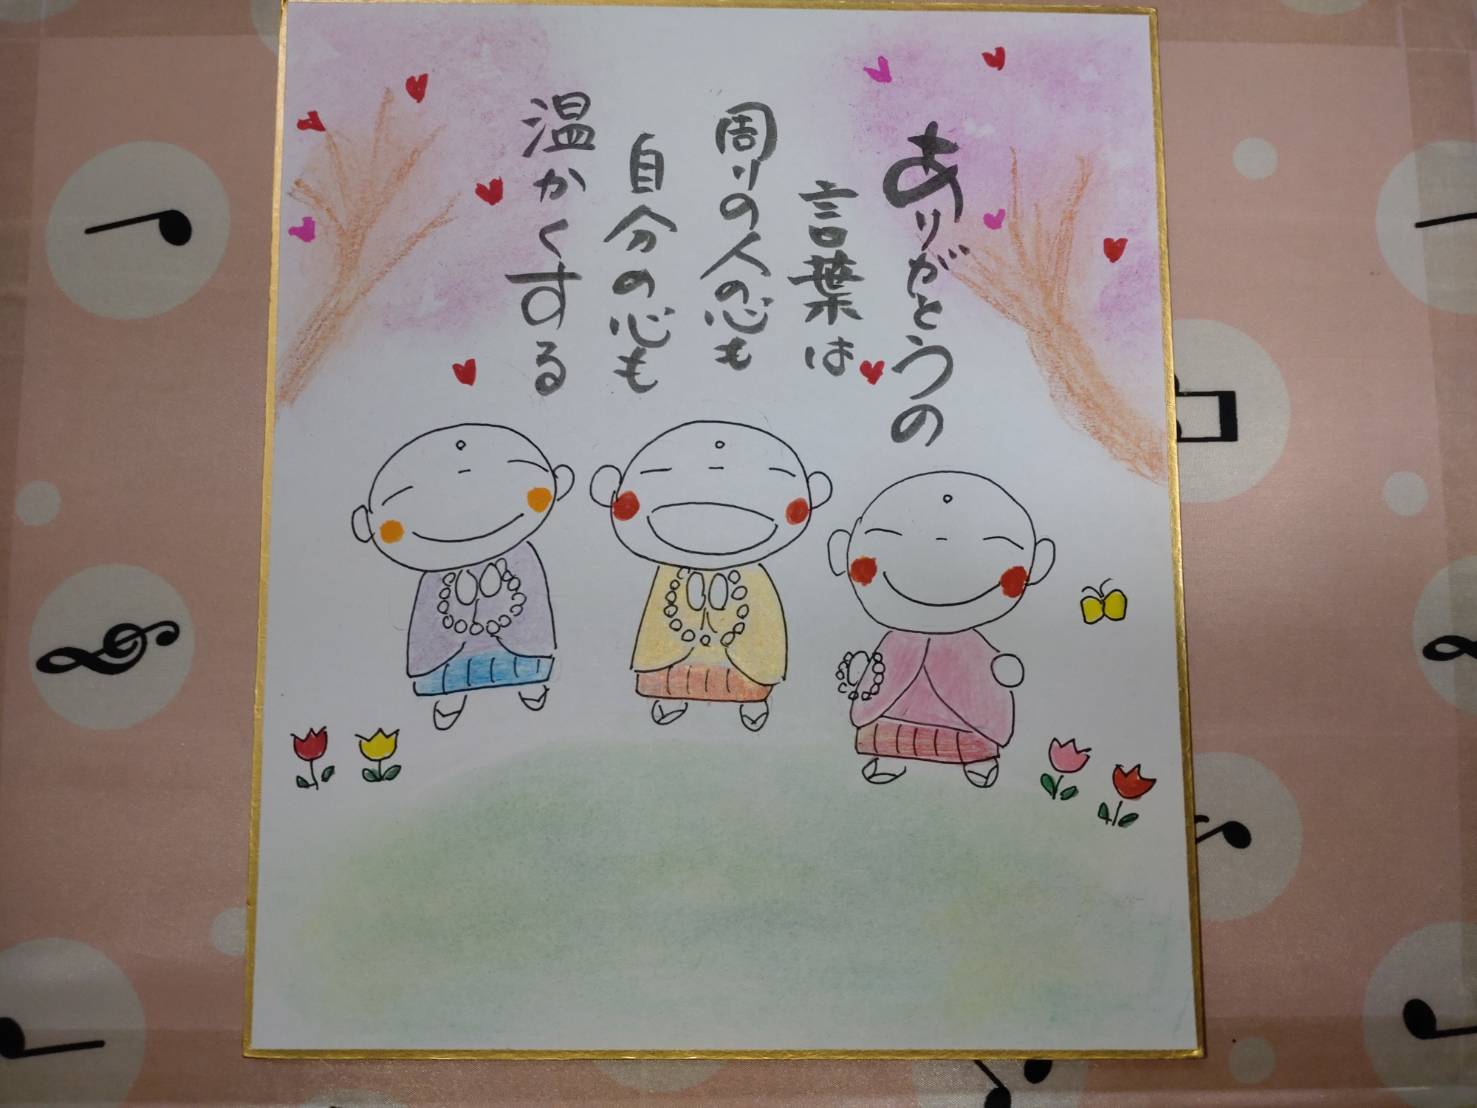 ありがとうの
言葉は
周りの人の心も
自分の心も
温かくする